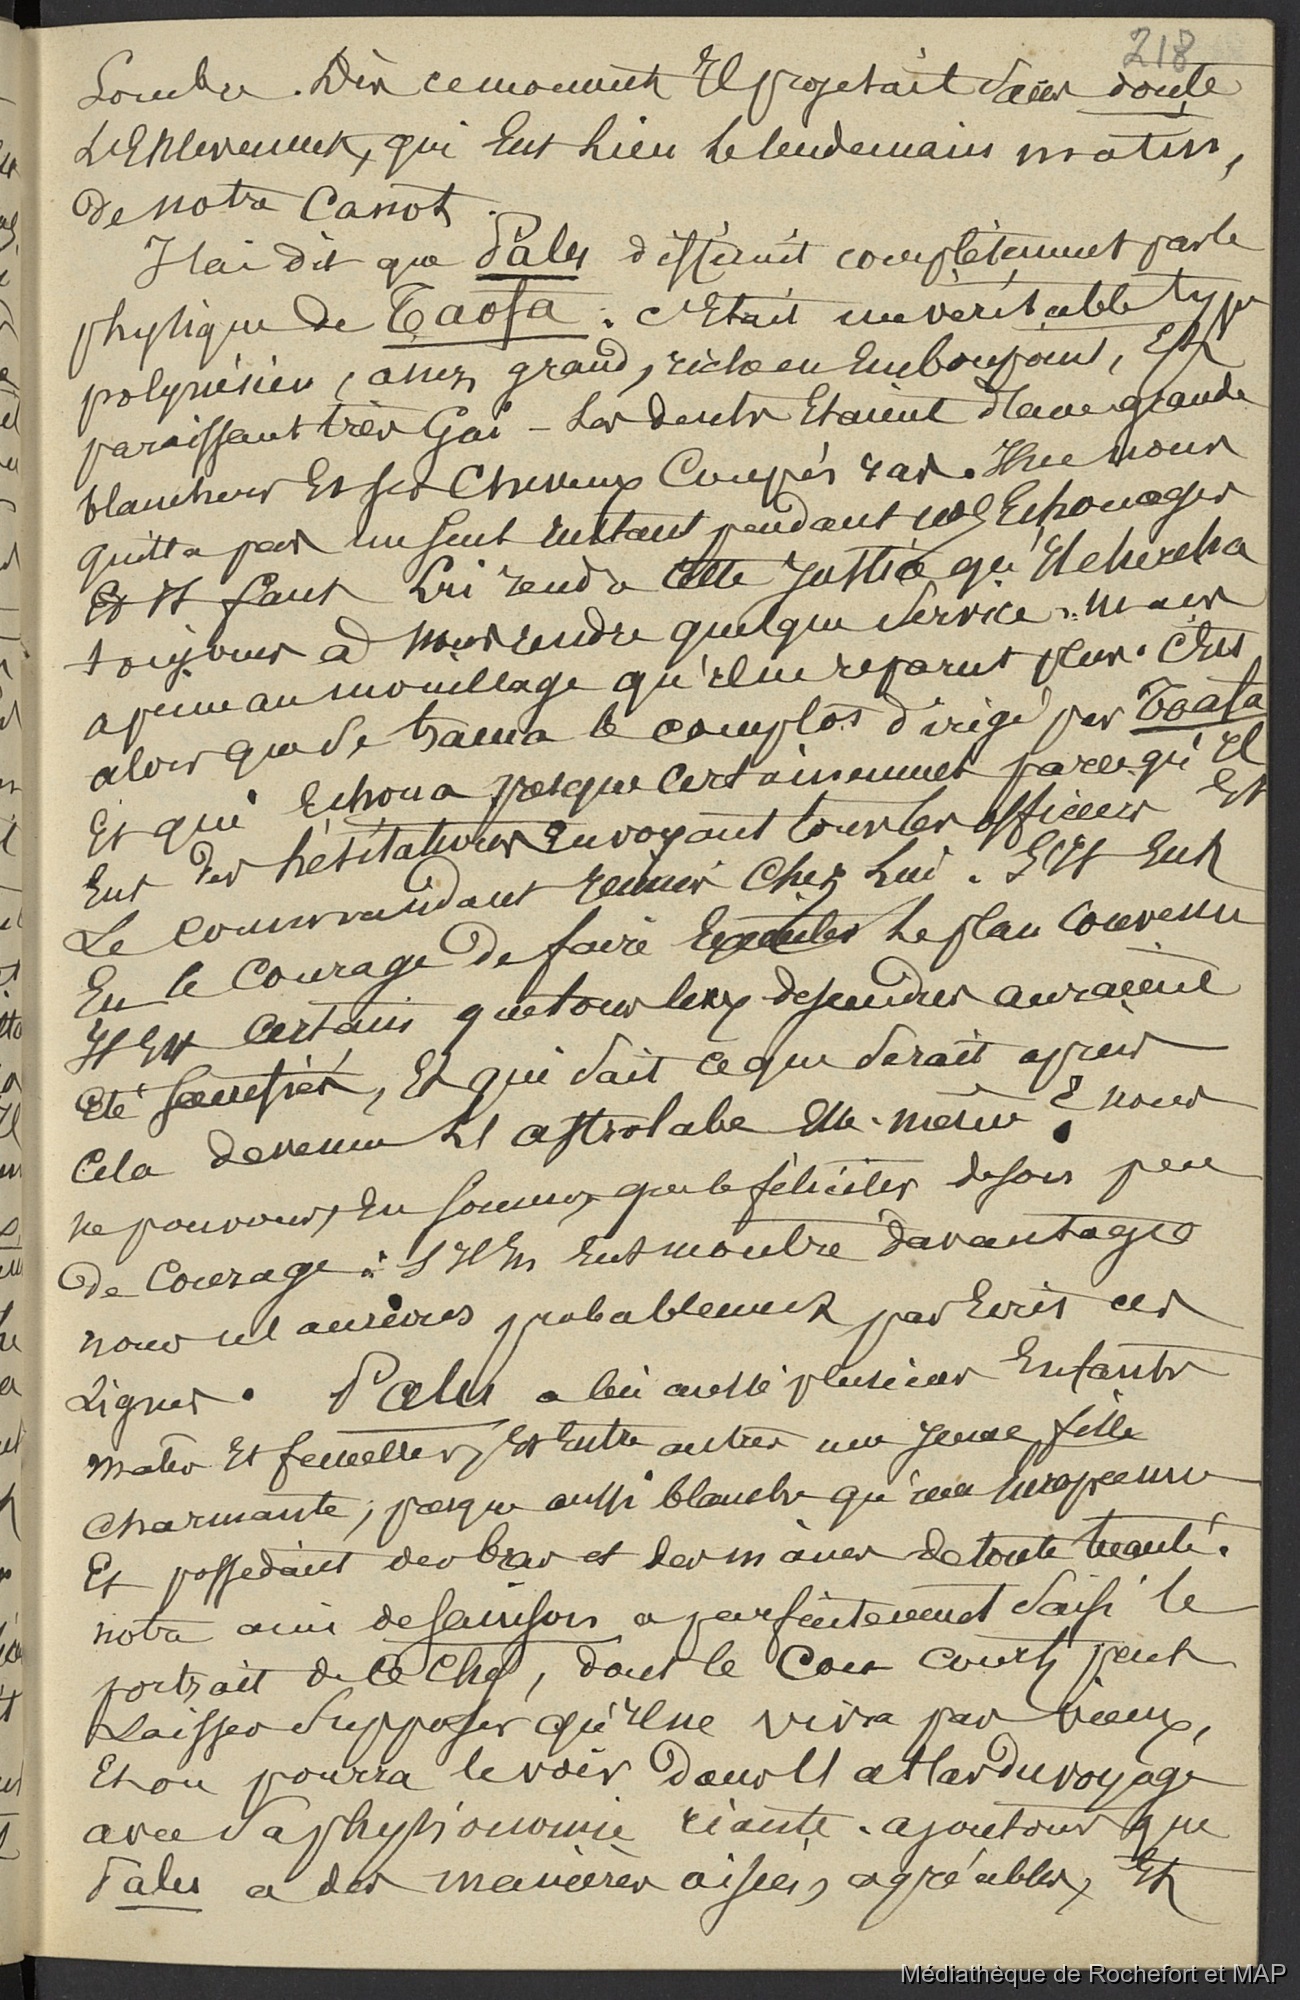 218
Sombre. Dès ce moment Il projetait sans doute
L'Enlevement, qui Eut Lieu Le lendemain matin,
de notre Canot.
J'ai dit que Palu différait complètement par le
physique de Taofa. c'Etait un véritable type
polynésien, assez grand, riche en Embonpoint, Et
paraissant très Gai - Ses dents Etaient d'une grande
blancheur Et ses Cheveux Coupés ras. Il ne nous
quitta pas un seul instant pendant nos Echouages
Et Il faut Lui rendre cette justice qu'Il chercha
toujours à nous rendre quelque service. mais
a peine au mouillage qu'il ne reparut plus. C'Est
alors que se trama le complot dirigé par Toafa
Et qui Echoua presque certainement parcequ'Il
Eut des hésitations En voyant tous les officiers Et
Le Commandant réunis Chez Lui. S'Il Eut
Eu le Courage de faire Exécuter Le plan Convenu
Il Est Certain que tous Ceux descendus auraient
été sacrifiés, Et qui sait ce que serait après
Cela devenue L'astrolabe Elle-même ? nous
ne pouvons, En somme, que le féliciter de son peu
de Courage : S'Il En Eut montré davantage
nous n'aurions probablement pas Ecrit ces
Lignes. Palu a lui aussi plusieurs Enfants
males Et femelles, Et Entre autres une jeune fille
charmante, presque aussi blanche qu'une Européenne
Et possédant des bras et des mains de toute beauté.
notre ami de Sainson a parfaitement saisi le
portrait de Ce Chef, dont le Cou court peut
Laisser Supposer qu'Il ne vivra pas vieux,
Et on pourra le voir dans L'atlas du voyage
avec sa physionomie riante. ajoutons que
Palu a des manières aisées, agréables, Et
Médiathèque de Rochefort et MAP